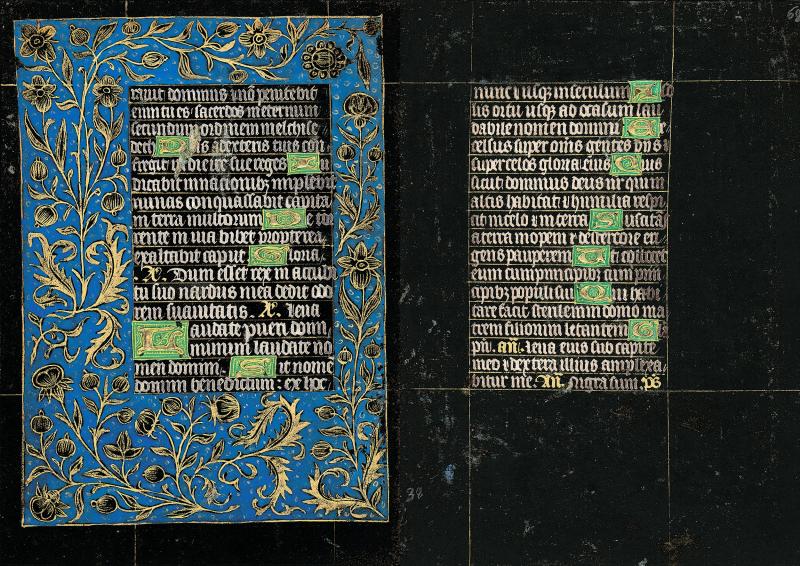 rauit dominus et nō penitebit
eum tu es sacerdos ineternum
secundum ordinem melchise
dech Dn̄s adextris tuis con
fregit in die ire sue reges Iu
dicabit innacionibus implebit
ruinas conquassabit capita
in terra multorum De tor
rente in uia bibet propterea
exaltabit caput Gloria
Dum esset rex in accubi
tu suo nardus mea dedit odo
rem suauitatis Leua
Laudate pueri domi
num laudate no
men domini Sit nome
domini benedictum: ex hoc
nunc et usq̄ in seculum A so
lis ortu usq̄ ad ocasum lau
dabile nomen domini Ex
celsus super omīs gentes dn̄s et
super celos gloria eius Quis
sicut dominus deus nr̄ qui in
altis habitat et humilia respi
cit in celo et in terra Suscitās
a terra inopem et de stercore eri
gens pauperem Ut collocet
eum cum principibꝫ cum prin
cipibꝫ populi sui Qui habi
tare facit sterilem in domo ma
trem filiorum letantem Gl
pr̄i. an̄. Leua eius sub capite
meo et dextera illius amplexa
bitur me. An̄. Nigra sum. ps̄
68
38